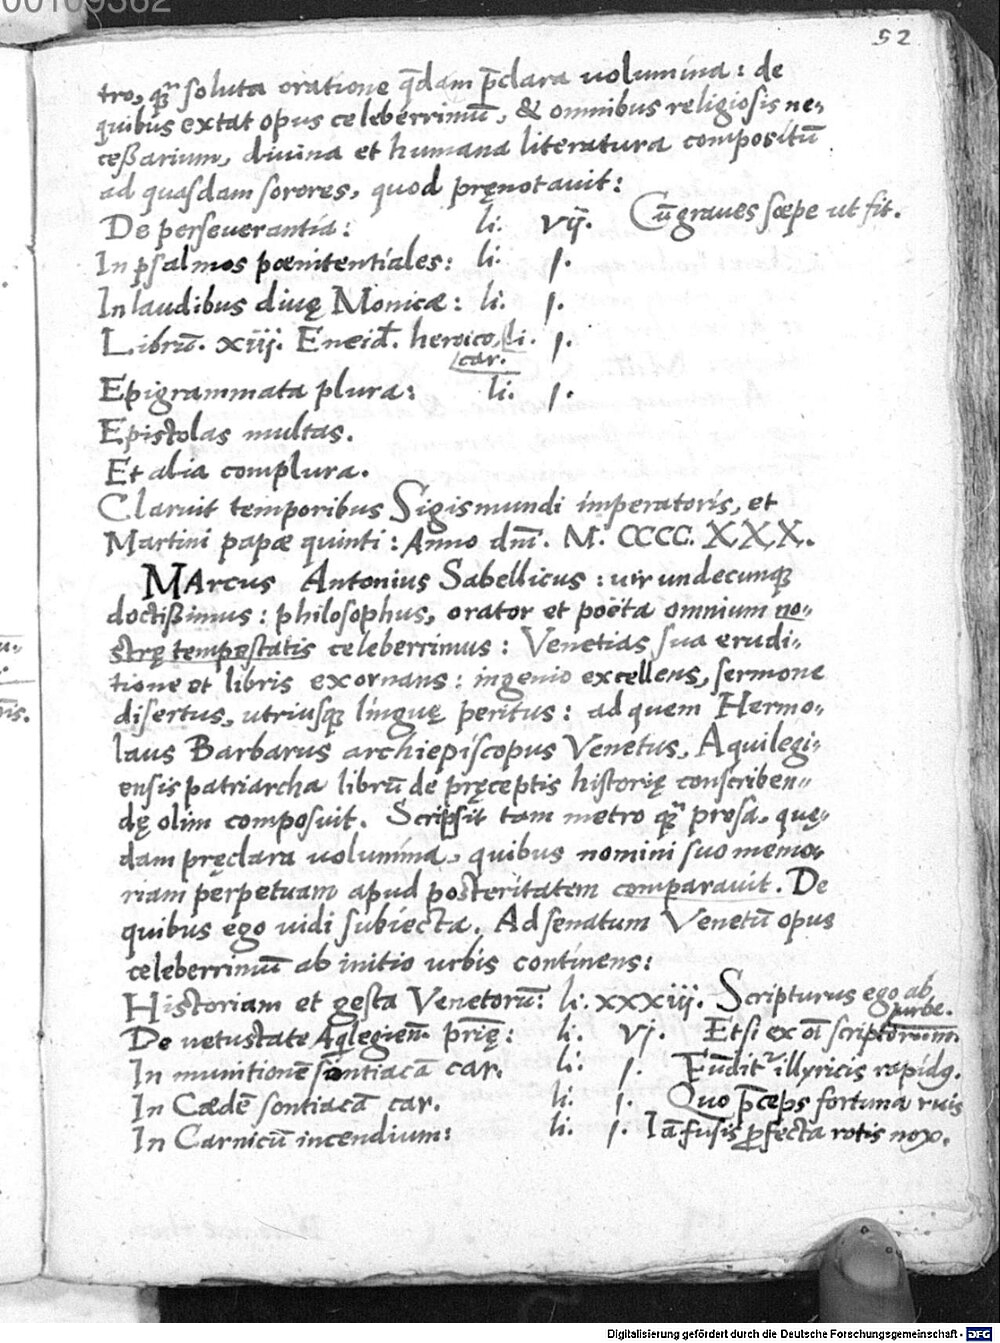 00109362
52
tro, qꝫ soluta oratione q̄dam p̄clara uolumina: de
quibus extat opus celeberrimū, & omnibus religiosis ne„
ceßarium, diuina et humana literatura compositū
ad quasdam sorores, quod pręnotauit:
De perseuerantia: li. vij. Cū graues sæpe ut fit.
In psalmos pœnitentiales: li. I.
In laudibus diuę Monicæ: li. I.
Librū. xiij. Eneid. heroico li. I.
car.
Epigrammata plura: li. I.
Epistolas multas.
Et alia complura.
Claruit temporibus Sigismundi imperatoris, et
Martini papæ quinti: Anno dnī. M. CCCC. XXX.
MArcus Antonius Sabellicus: uir undecunqꝫ
doctißimus: philosophus, orator et poëta omnium no„
strę tempestatis celeberrimus: Venetias sua erudi„
tione et libris exornans: ingenio excellens, sermone
disertus, utriusqꝫ linguę peritus: ad quem Hermo„
laus Barbarus archiepiscopus Venetus, Aquilegi„
ensis patriarcha librū de pręceptis historię conscriben„
dę olim composuit. Scripsit tam metro qꝫ prosa, quę„
dam pręclara uolumina, quibus nomini suo memo„
riam perpetuam apud posteritatem comparauit. De
quibus ego uidi subiecta. Ad senatum Venetū opus
celeberrimū ab initio urbis continens:
Historiam et gesta Venetorū: li. xxxiij. Scripturus ego ab
urbe.
De uetustate Aqlegien. prię: li. vj. Etsi ex oī scriptorum.
In munitionē sontiacā car. li. I. Fūdit illyricis rapidꝰ.
In Cædē sontiacā car. li. I. Quo p̄ceps fortuna ruis
In Carnicū incendium: li. I. Iā fusis ꝑfecta rotis nox.
Digitalisierung gefördert durch die Deutsche Forschungsgemeinschaft - DFG